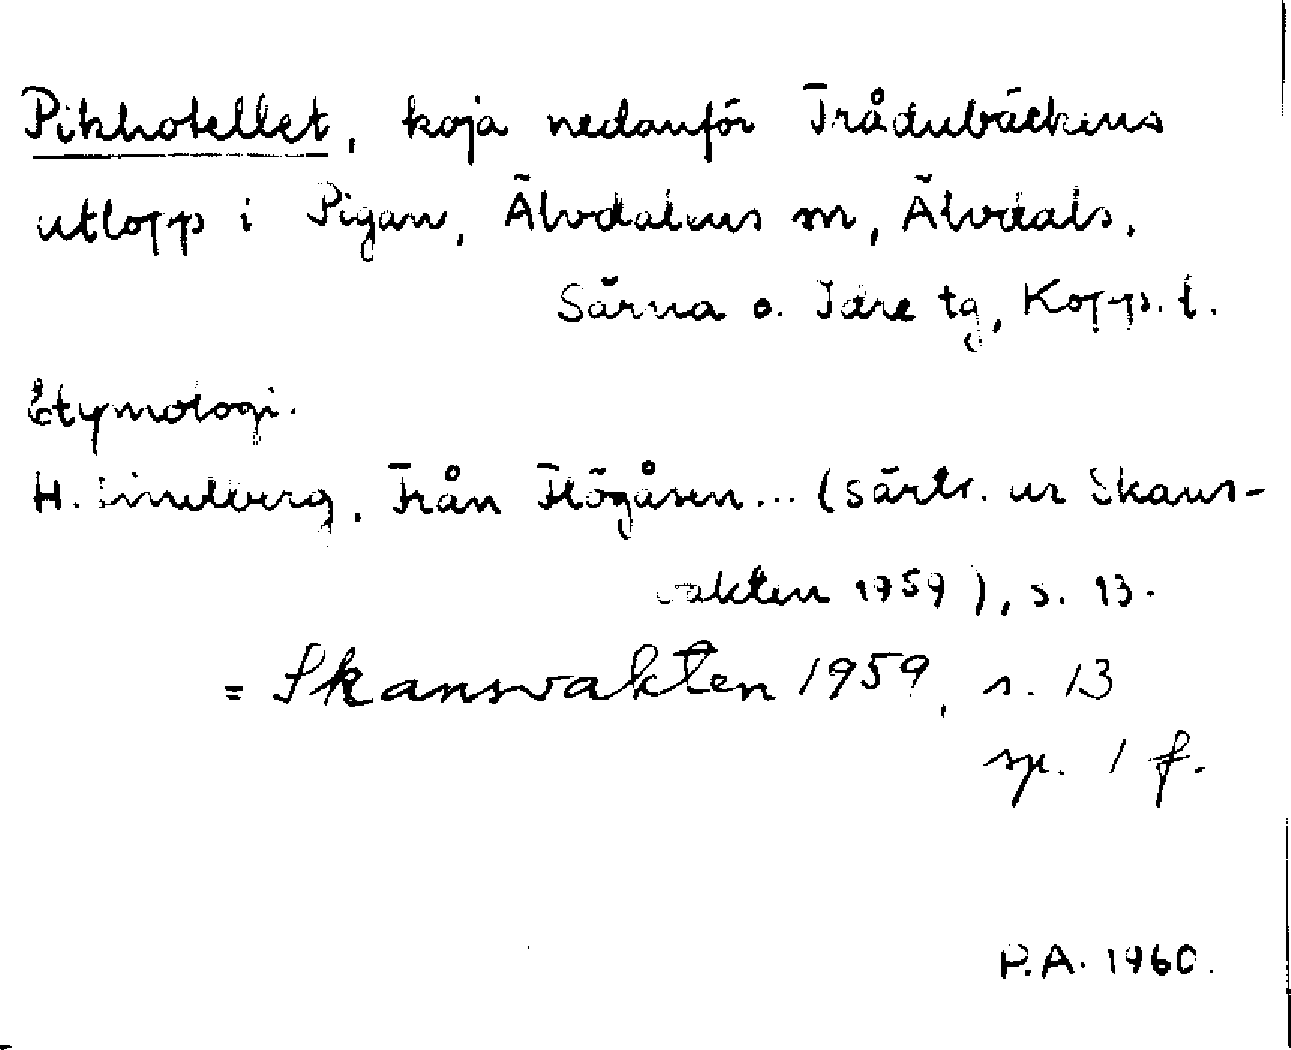 Pikhotellet, koja nedanför Trådubäckens
utlopp i Pigan, Älvdalens sn, Älvdals,
Särna o. Idre tg, Kopp. l.
Etymologi.
H. Lindberg, Från Flögåsen... (särtr. ur Skans-
vakten 1959), s. 13.
= Skansvakten 1959, s. 13
sp. 1 f.
P.A. 1960.